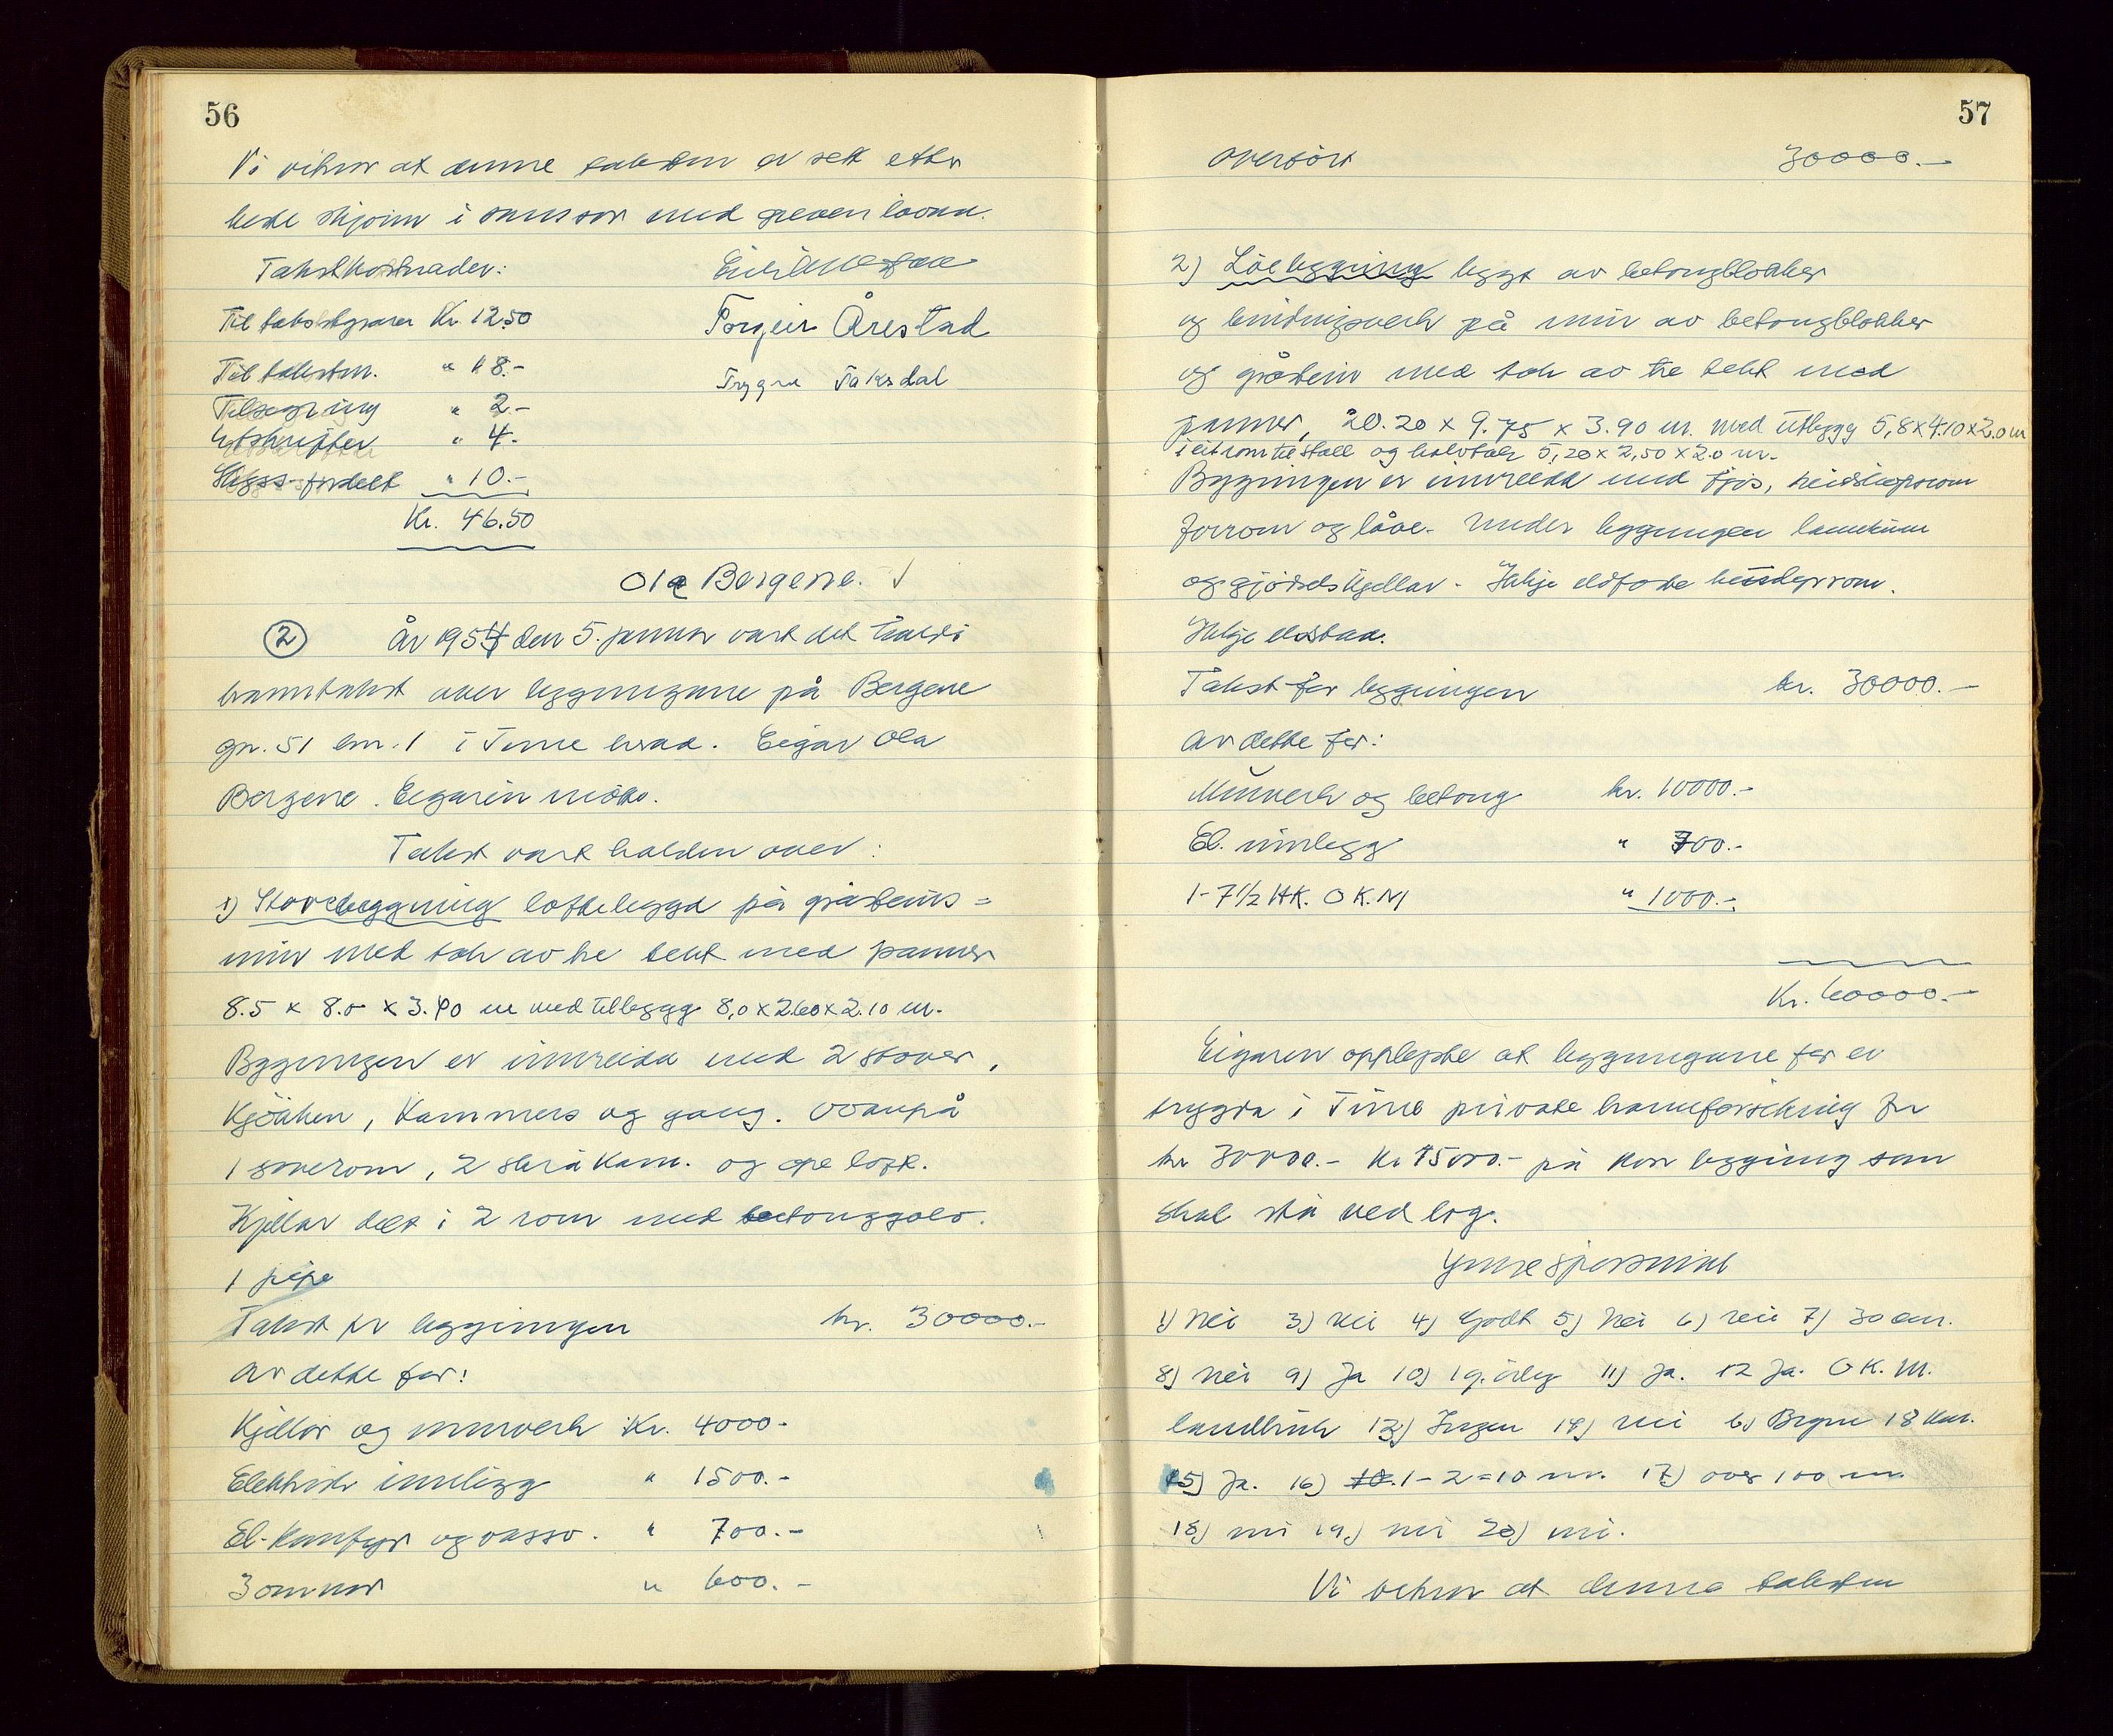 56
Vi vitnar at denne taksten er sett etter
beste skjønn i samsvar med greven lovnad.
Takstkostnader:
Til takstgjerar Kr. 12.50
Torgeir Årestad
Til takstm. " 18.-
Trygve Taksdal
Tilsegning " 2.-
Utskrifter " 4.-
Skyss fordelt " 10.-
Kr. 46.50
Ola Bergene. √
2 År 1954 den 5. januar vart det halde
branntakst over bygningane på Bergene
gn. 51 bn. 1 i Time herad. Eigar Ola
Bergene. Eigaren møtte.
Takst vart halden over:
1) Stovebygning loftebygd på gråsteins=
mur med tak av tre tekt med panner
8.5 x 8.0 x 3.90 m med tilbygg 8,0 x 2.60 x 2.10 m.
Bygningen er innreidd med 2 stover,
Kjøkken, Kammers og gang. Ovanpå
1 soverom, 2 skråkam. og ope loft.
Kjellar delt i 2 rom med betonggolv.
1 pipe
Takst for bygningen kr. 30000.-
Av dette for:
Kjellar og murverk Kr. 4000-
Elektrisk innlegg " 1500.-
El-komfyr og vassv. " 700.-
3 omnar " 600.-
57
Overført 30000.-
2) Løebygning bygt av betongblokker
og bindingsverk på mur av betongblokker
og gråstein med tak av tre tekt med
panner, 20.20 x 9.75 x 3.90 m. med utbygg 5,8 x 4.10 x 2.0 m
i eit rom til stall og halvtak 5,20 x 2,50 x 2.0 m.
Bygningen er innreidd med fjøs, reidskapsrom
forrom og låve. Under bygningen landkum
og gjødselskjellar. Ikkje eldfaste
Ikkje eldstad.
Takst for bygningen kr. 30000.-
Av dette for:
Murverk og betong kr. 10000.-
El. innlegg " 700.-
1- 7½ HK. O K.M " 1000.-
Kr. 60000.-
Eigaren opplyste at bygningane før er
trygda i Time private brannforsikring for
kr 30000.- Kr 15000.- på kvar bygning som
skal stå ved lag.
Ymse spørsmål
1) Nei 3) Nei 4) Godt 5) Nei 6) Nei 7) 30 cm.
8) Nei 9) Ja 10) 1 g. årleg 11) Ja. 12 Ja. O K. M.
landbruk 13) Ingen 14) nei b) Bryne 18 km.
15) Ja. 16) 1 - 2 = 10 m. 17) over 100 m.
18) nei 19) nei 20) nei.
Vi vitnar at denne taksten